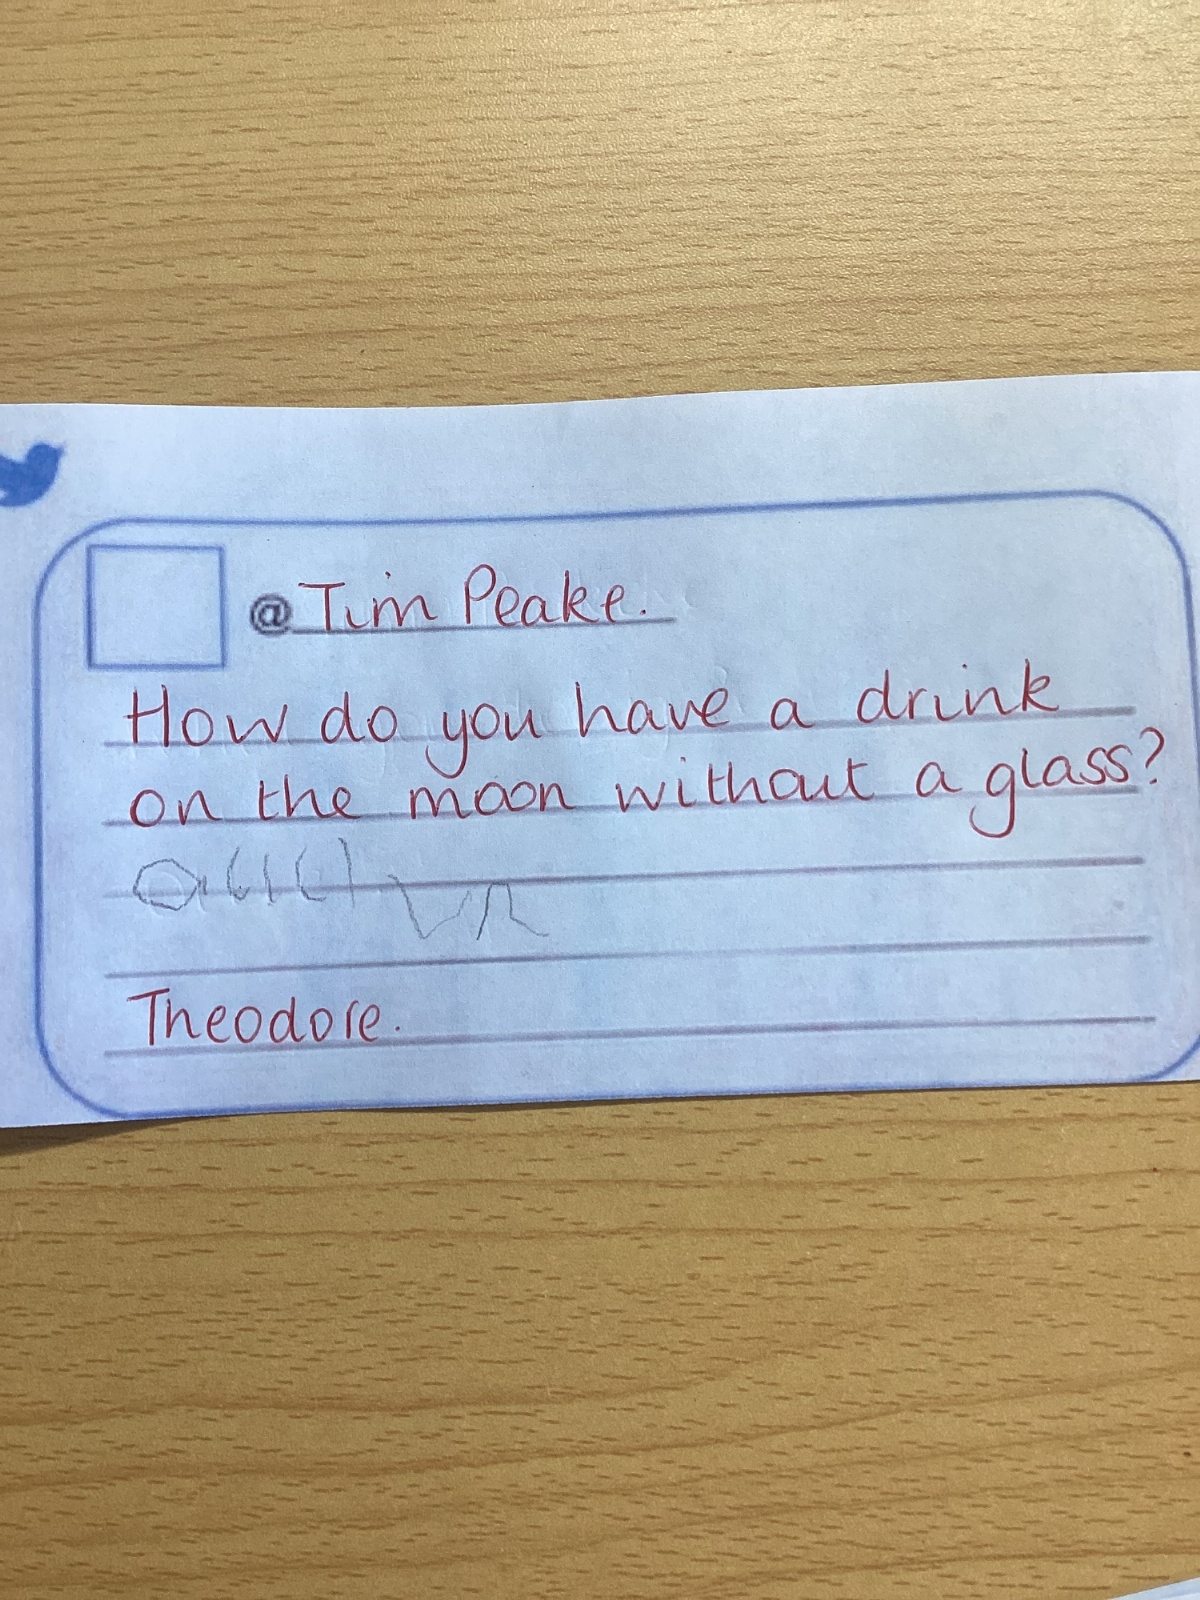 @ Tim Peake.
How do you have a drink
on the moon without a glass?
Theodore.